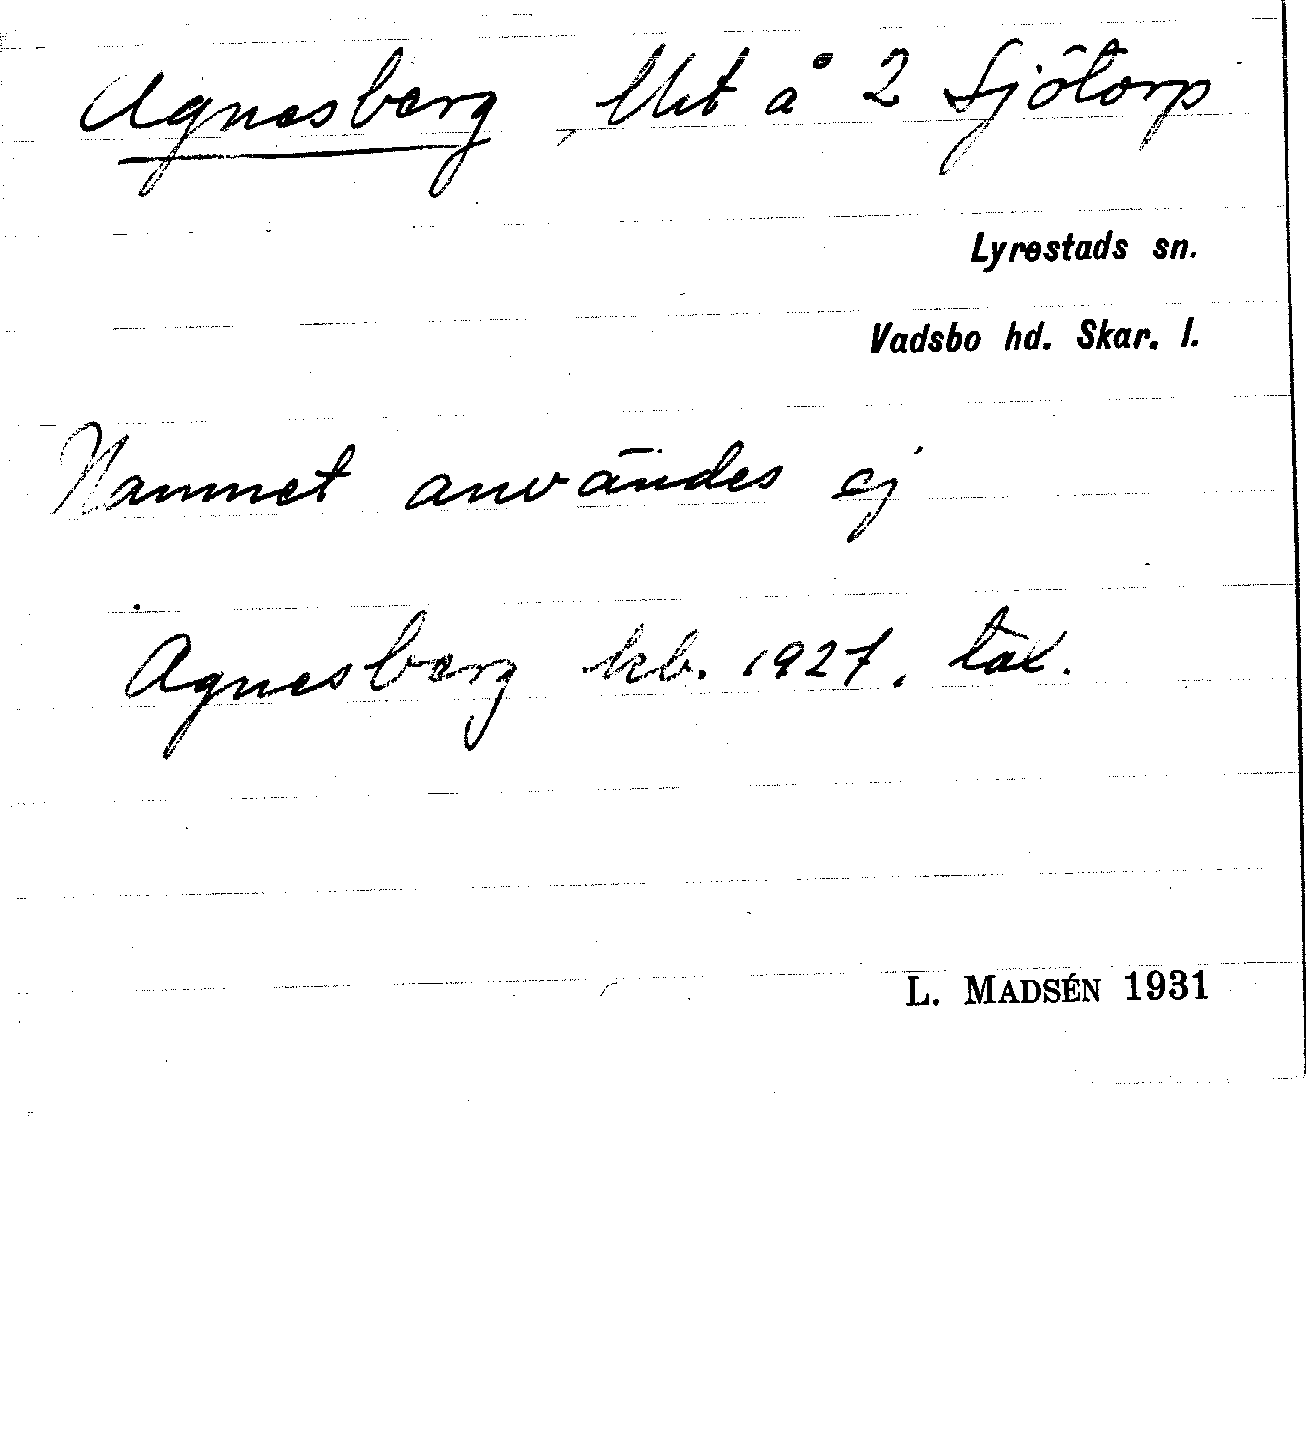 Agnesberg, lht å 2 Sjötorp
Lyrestads sn.
Vadsbo hd. Skar. l.
Namnet användes ej
Agnesberg kb. 1927. täk.
L. MADSÉN 1931